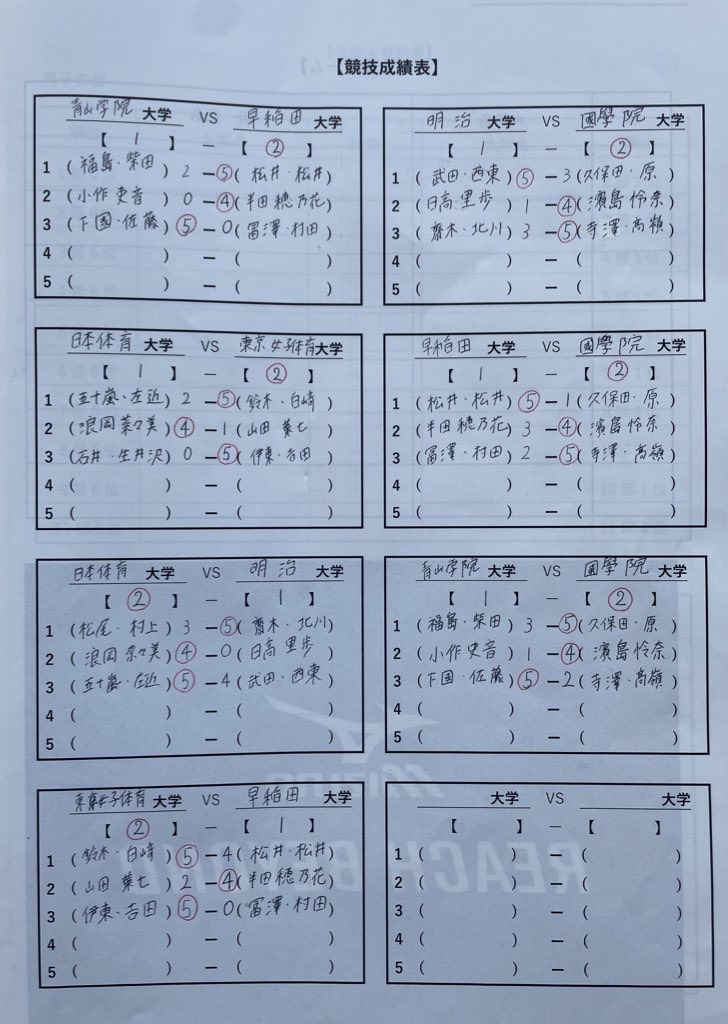 【競技成績表】
青山学院 大学 VS 早稲田 大学
【 1 】 － 【 ② 】
1 (福島・柴田) 2 － ⑤ (松井・松井)
2 (小作吏音) 0 － ④ (半田穂乃花)
3 (下園・佐藤) ⑤ － 0 (冨澤・村田)
4 ( ) － ( )
5 ( ) － ( )
明治 大学 VS 國學院 大学
【 1 】 － 【 ② 】
1 (武田・西東) ⑤ － 3 (久保田・原)
2 (日高里歩) 1 － ④ (濱島怜奈)
3 (齋木・北川) 3 － ⑤ (寺澤・高嶺)
4 ( ) － ( )
5 ( ) － ( )
日本体育 大学 VS 東京女子体育 大学
【 1 】 － 【 ② 】
1 (五十嵐・左近) 2 － ⑤ (鈴木・白崎)
2 (浪岡菜々美) ④ － 1 (山田葉七)
3 (石井・生井沢) 0 － ⑤ (伊東・吉田)
4 ( ) － ( )
5 ( ) － ( )
早稲田 大学 VS 國學院 大学
【 1 】 － 【 ② 】
1 (松井・松井) ⑤ － 1 (久保田・原)
2 (半田穂乃花) 3 － ④ (濱島怜奈)
3 (冨澤・村田) 2 － ⑤ (寺澤・高嶺)
4 ( ) － ( )
5 ( ) － ( )
日本体育 大学 VS 明治 大学
【 ② 】 － 【 1 】
1 (松尾・村上) 3 － ⑤ (齋木・北川)
2 (浪岡奈々美) ④ － 0 (日高里歩)
3 (五十嵐・左近) ⑤ － 4 (武田・西東)
4 ( ) － ( )
5 ( ) － ( )
青山学院 大学 VS 國學院 大学
【 1 】 － 【 ② 】
1 (福島・柴田) 3 － ⑤ (久保田・原)
2 (小作史音) 1 － ④ (濱島怜奈)
3 (下園・佐藤) ⑤ － 2 (寺澤・高嶺)
4 ( ) － ( )
5 ( ) － ( )
東京女子体育 大学 VS 早稲田 大学
【 ② 】 － 【 1 】
1 (鈴木・白崎) ⑤ － 4 (松井・松井)
2 (山田葉七) 2 － ④ (半田穂乃花)
3 (伊東・吉田) ⑤ － 0 (冨澤・村田)
4 ( ) － ( )
5 ( ) － ( )
大学 VS 大学
【 】 － 【 】
1 ( ) － ( )
2 ( ) － ( )
3 ( ) － ( )
4 ( ) － ( )
5 ( ) － ( )